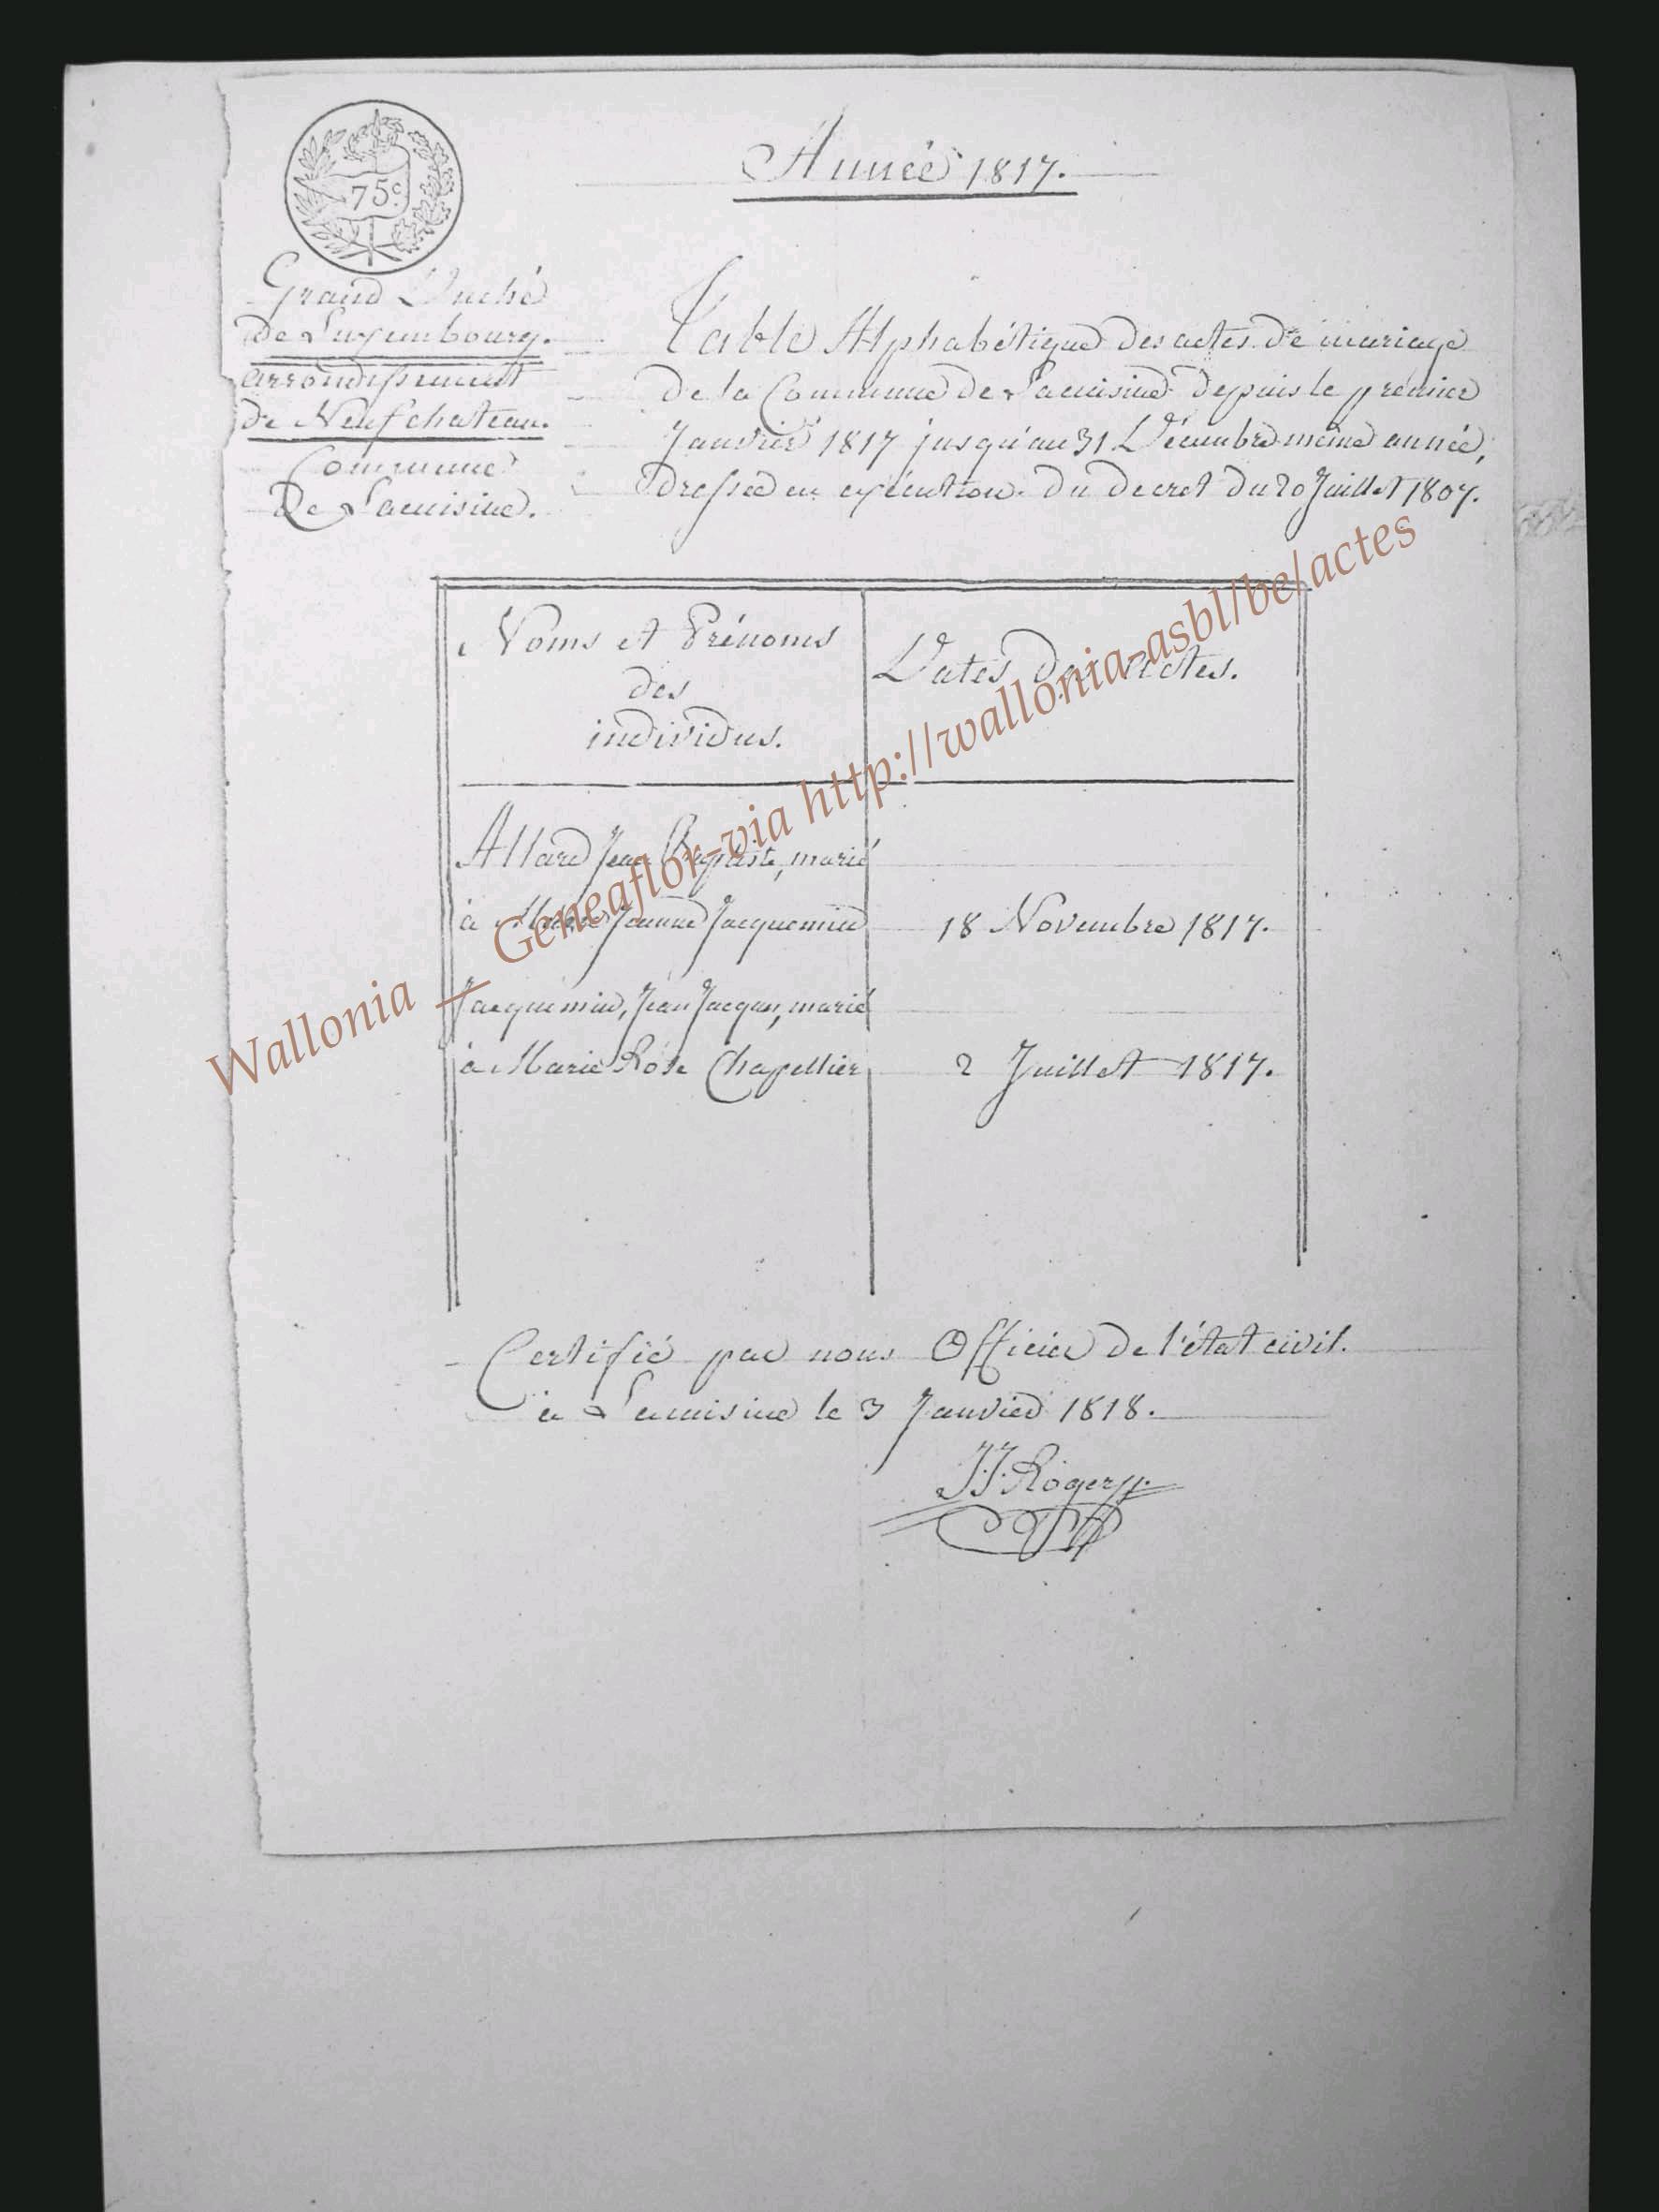 75c.
Année 1817.
Grand Duché
de Luxembourg.
arrondissement
de Neufchateau.
Commune
De Lacuisine.
Table Alphabétique des actes de mariage
de la Commune de Lacuisine depuis le premier
Janvier 1817 jusqu'au 31 Décembre même année,
dressée en exécution du decret du 20 Juillet 1807.
Noms et Prénoms
des
individus.
Dates des Actes.
Allard Jean Baptiste, marié
à Marie Jeanne Jacquemin
18 Novembre 1817.
Jacquemin, Jean Jacques, marié
à Marie Rose Chapellier
2 Juillet 1817.
Certifié par nous Officier de l'état civil.
à Lacuisine le 3 Janvier 1818.
J.J. Roger
Wallonia - Geneaflor-via http://wallonia-asbl/be/actes